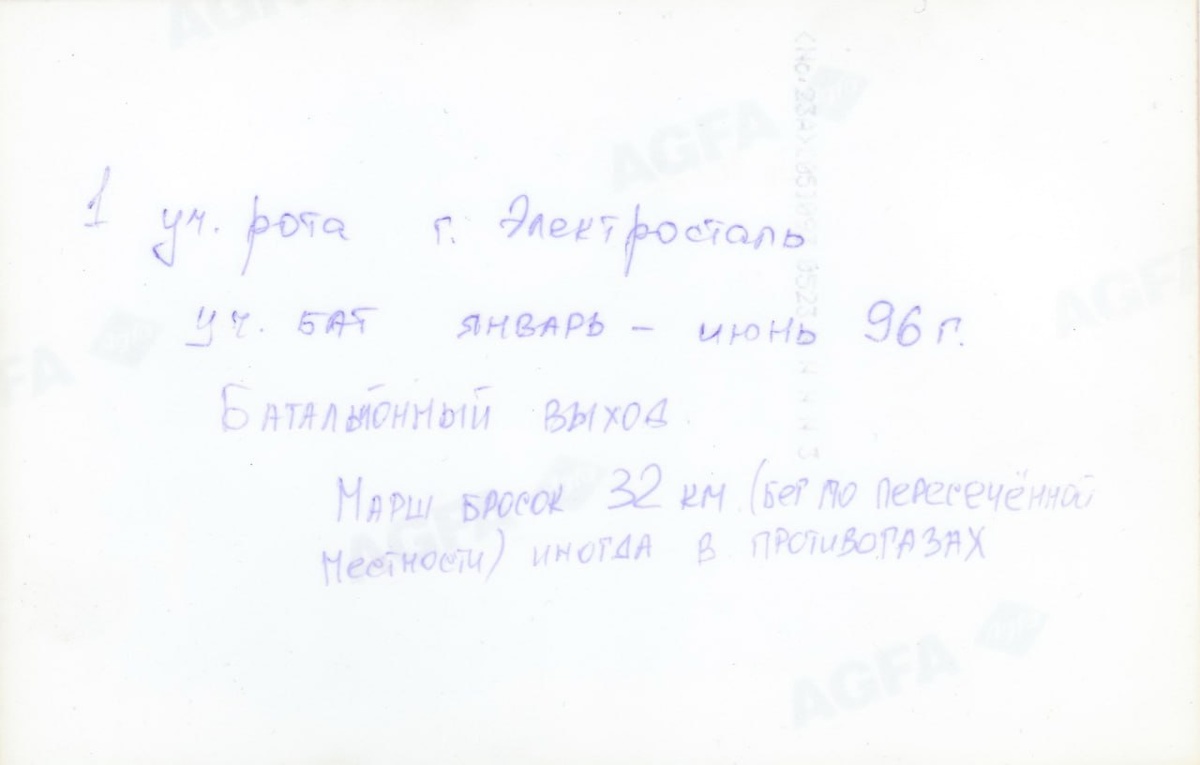 1 уч. рота г. Электросталь
уч. бат январь – июнь 96 г.
Батальйонный выход
Марш бросок 32 км (бег по пересечённой
местности) иногда в противогазах
AGFA
AGFA
AGFA
AGFA
AGFA